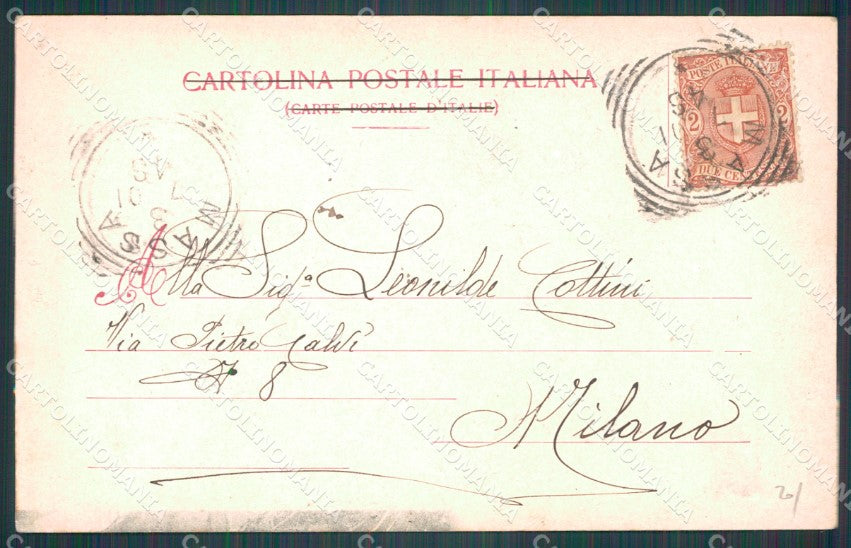 CARTOLINA POSTALE ITALIANA
(CARTE POSTALE D'ITALIE)
POSTE
2 2
DUE CEN
MASSA
MASSA
Alla Sigª Leonilde Cottini
Via Pietro Calvi
N 8
Milano
2/
CARTOLINOMANIA